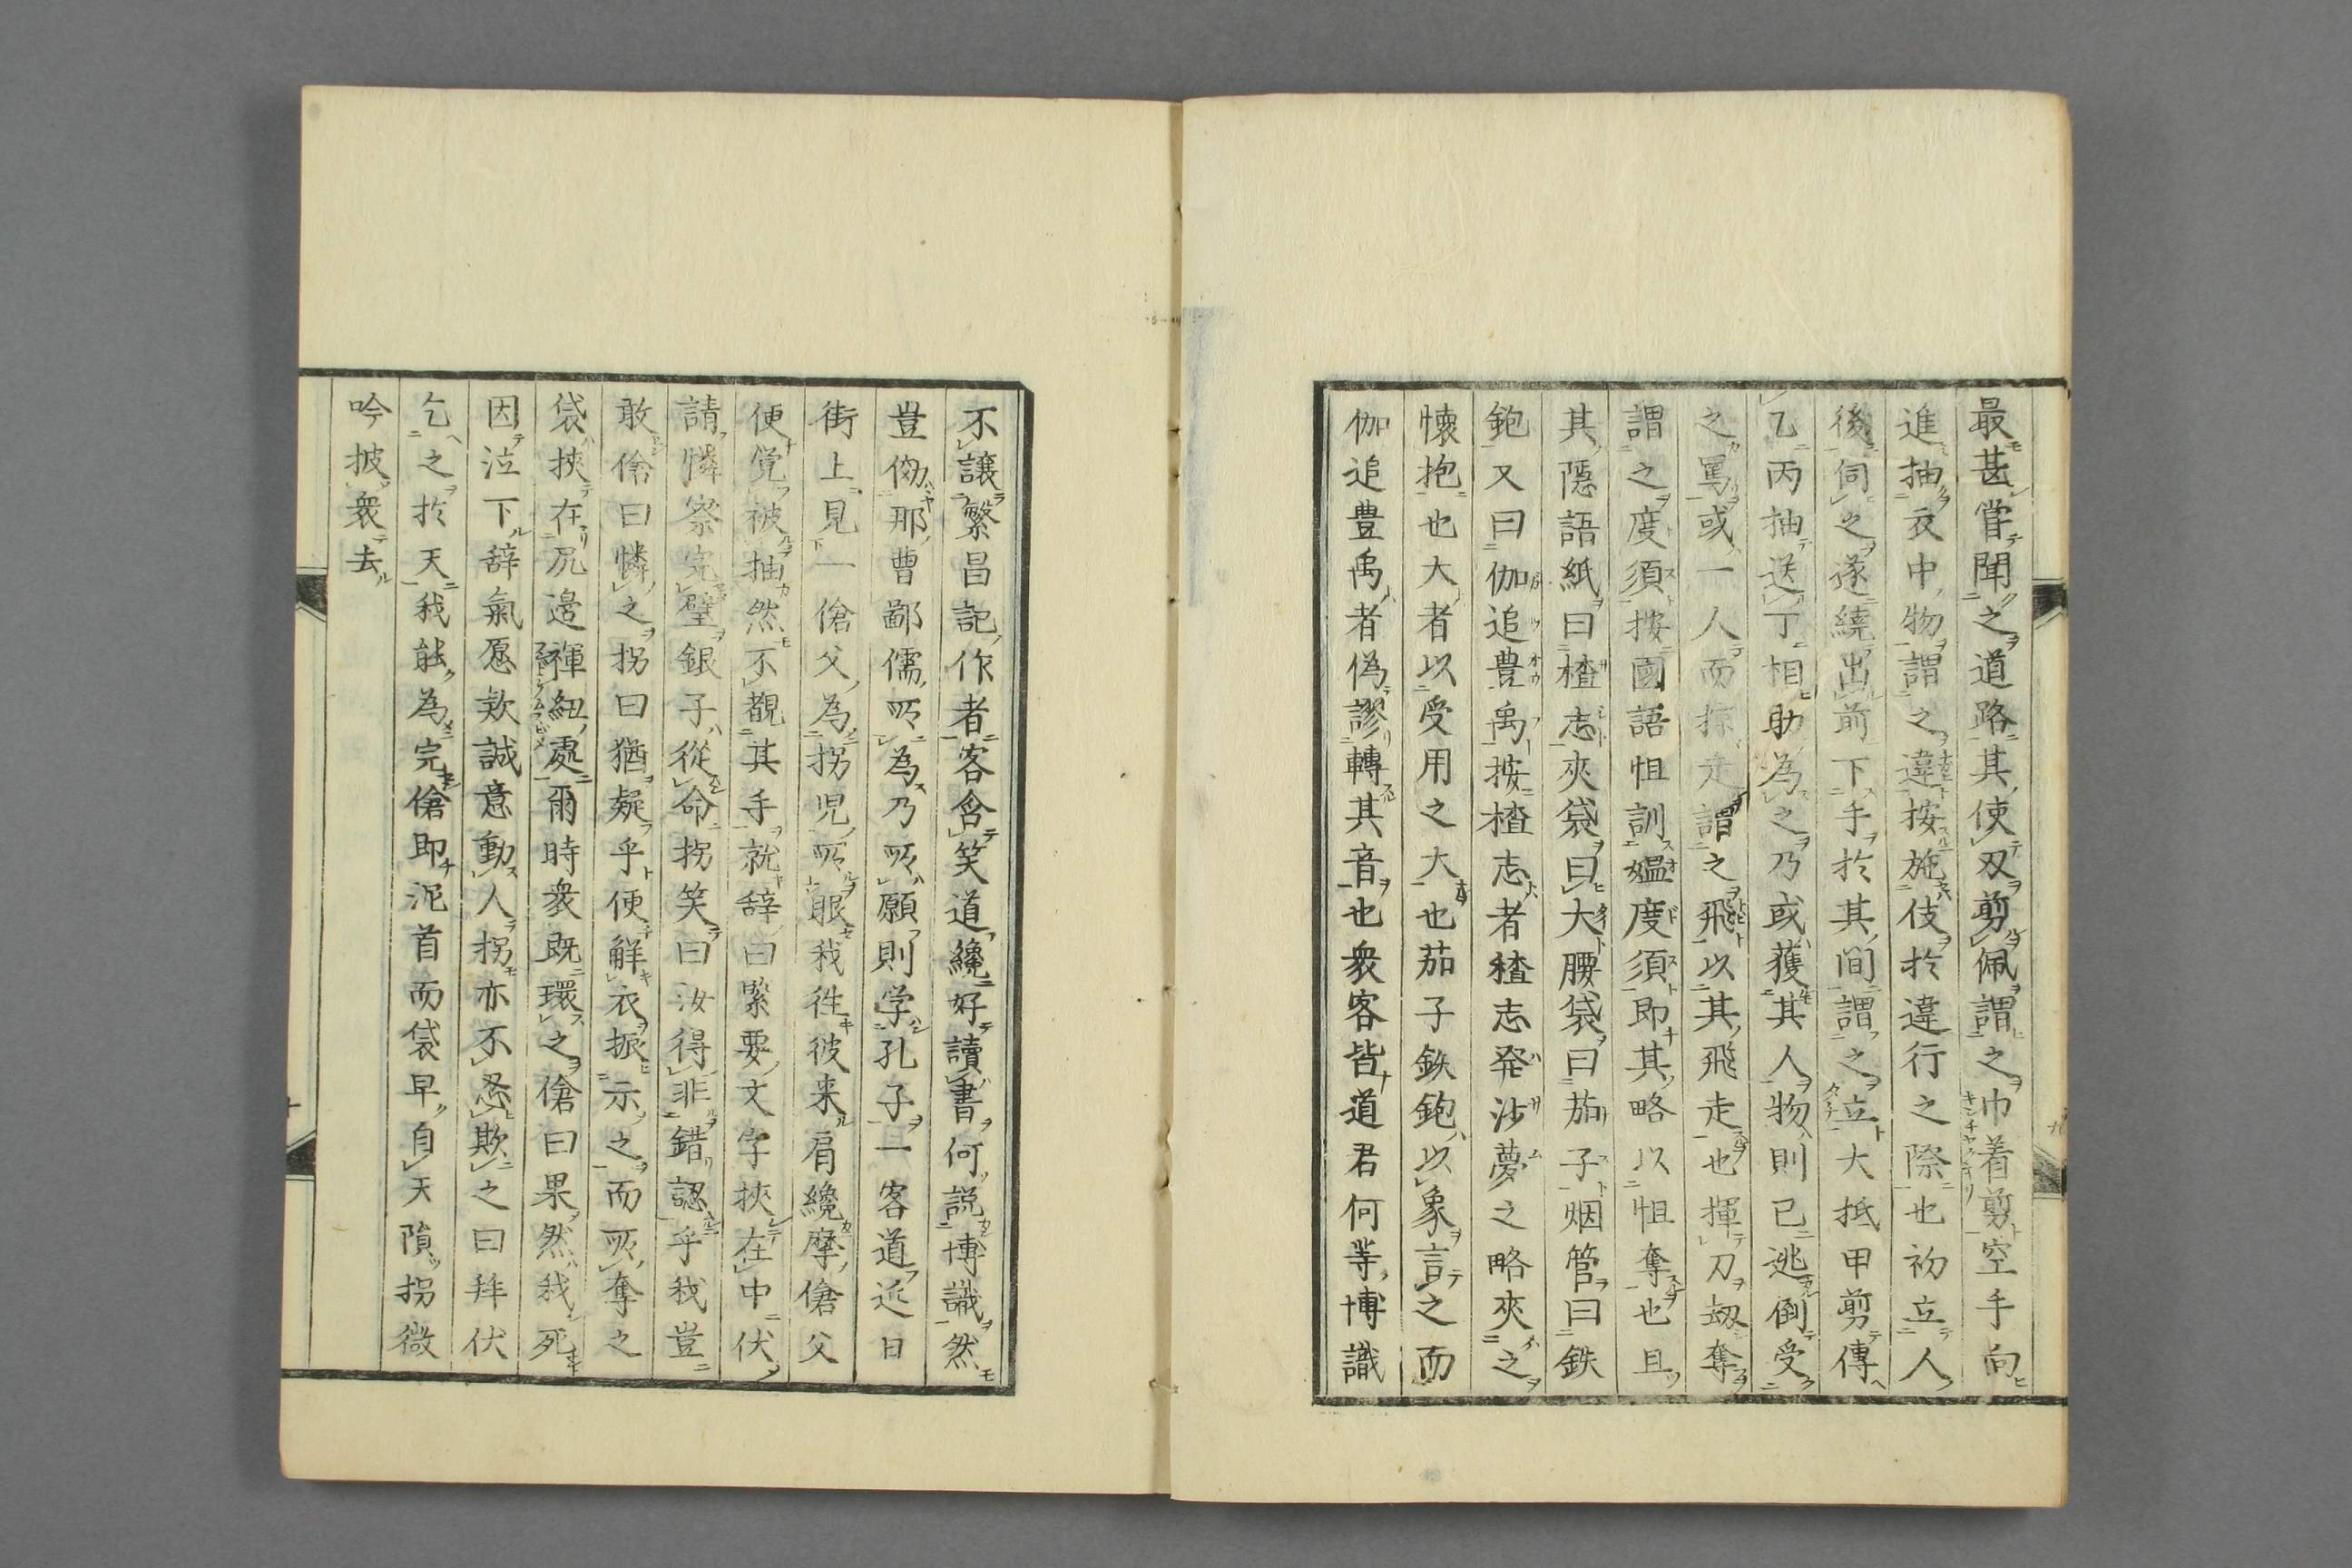 最甚嘗聞之道路其使刃剪佩謂之巾着剪空手向
進抽衣中物謂之違按施伎於違行之際也初立人
後伺之遂繞出前下手於其間謂之立大抵甲剪傳
乙丙抽送丁相助為之乃或獲其人物則已逃倒受
之罵或一人而掠走謂之飛以其飛走也揮刀刼奪
謂之度須按國語怛訓媼度須即其略以怛奪也且
其隱語紙曰楂志夾袋曰大腰袋曰茄子烟管曰鉄
鉋又曰伽追豊禹按楂志者楂志発沙夢之略夾之
懷抱也大者以受用之大也茄子鉄鉋以象言之而
伽追豊禹者偽謬轉其音也衆客皆道君何等博識
不讓繁昌記作者客含笑道纔好讀書何説博識然
豈倣那曹鄙儒所為乃所願則学孔子一客道近日
街上見一傖父為拐児所眼我徃彼来肩纔摩傖父
便覚被抽然不覩其手就辞曰緊要文字挾在中伏
請憐察完璧銀子從命拐笑曰汝得非錯認乎我豈
敢傖曰憐之拐曰猶疑乎便解衣振示之而所奪之
袋挾在尻邉褌紐處爾時衆既環之傖曰果然我死
因泣下辞氣愿欵誠意動人拐亦不忍欺之曰拜伏
乞之於天我能為完傖即泥首而袋早自天隕拐微
吟披衆去